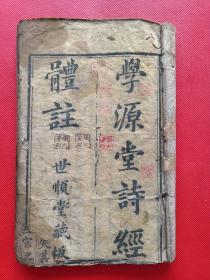 學源堂詩經
體註
世順堂藏板